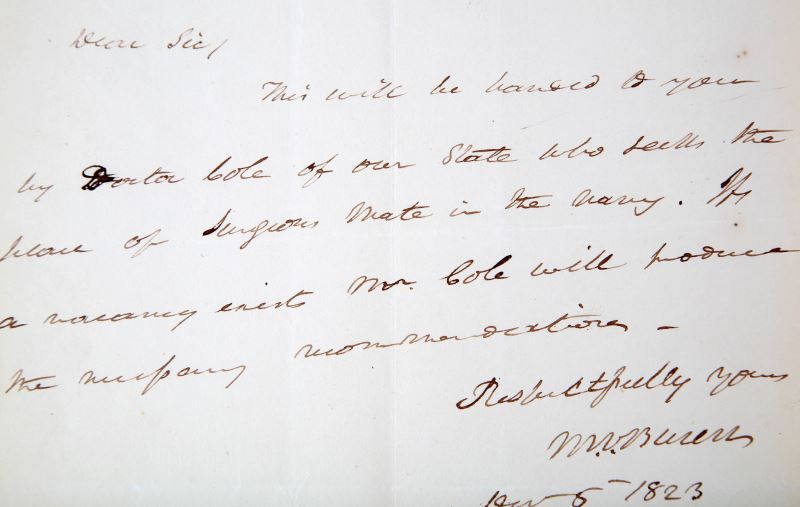 Dear Sir,
This will be handed to you
by Doctor Cole of our State who seeks the
place of Surgeons Mate in the navy. If
a vacancy exists Mr. Cole will produce
the necessary recommendations -
Respectfully yours
M.V.Buren
6 1823